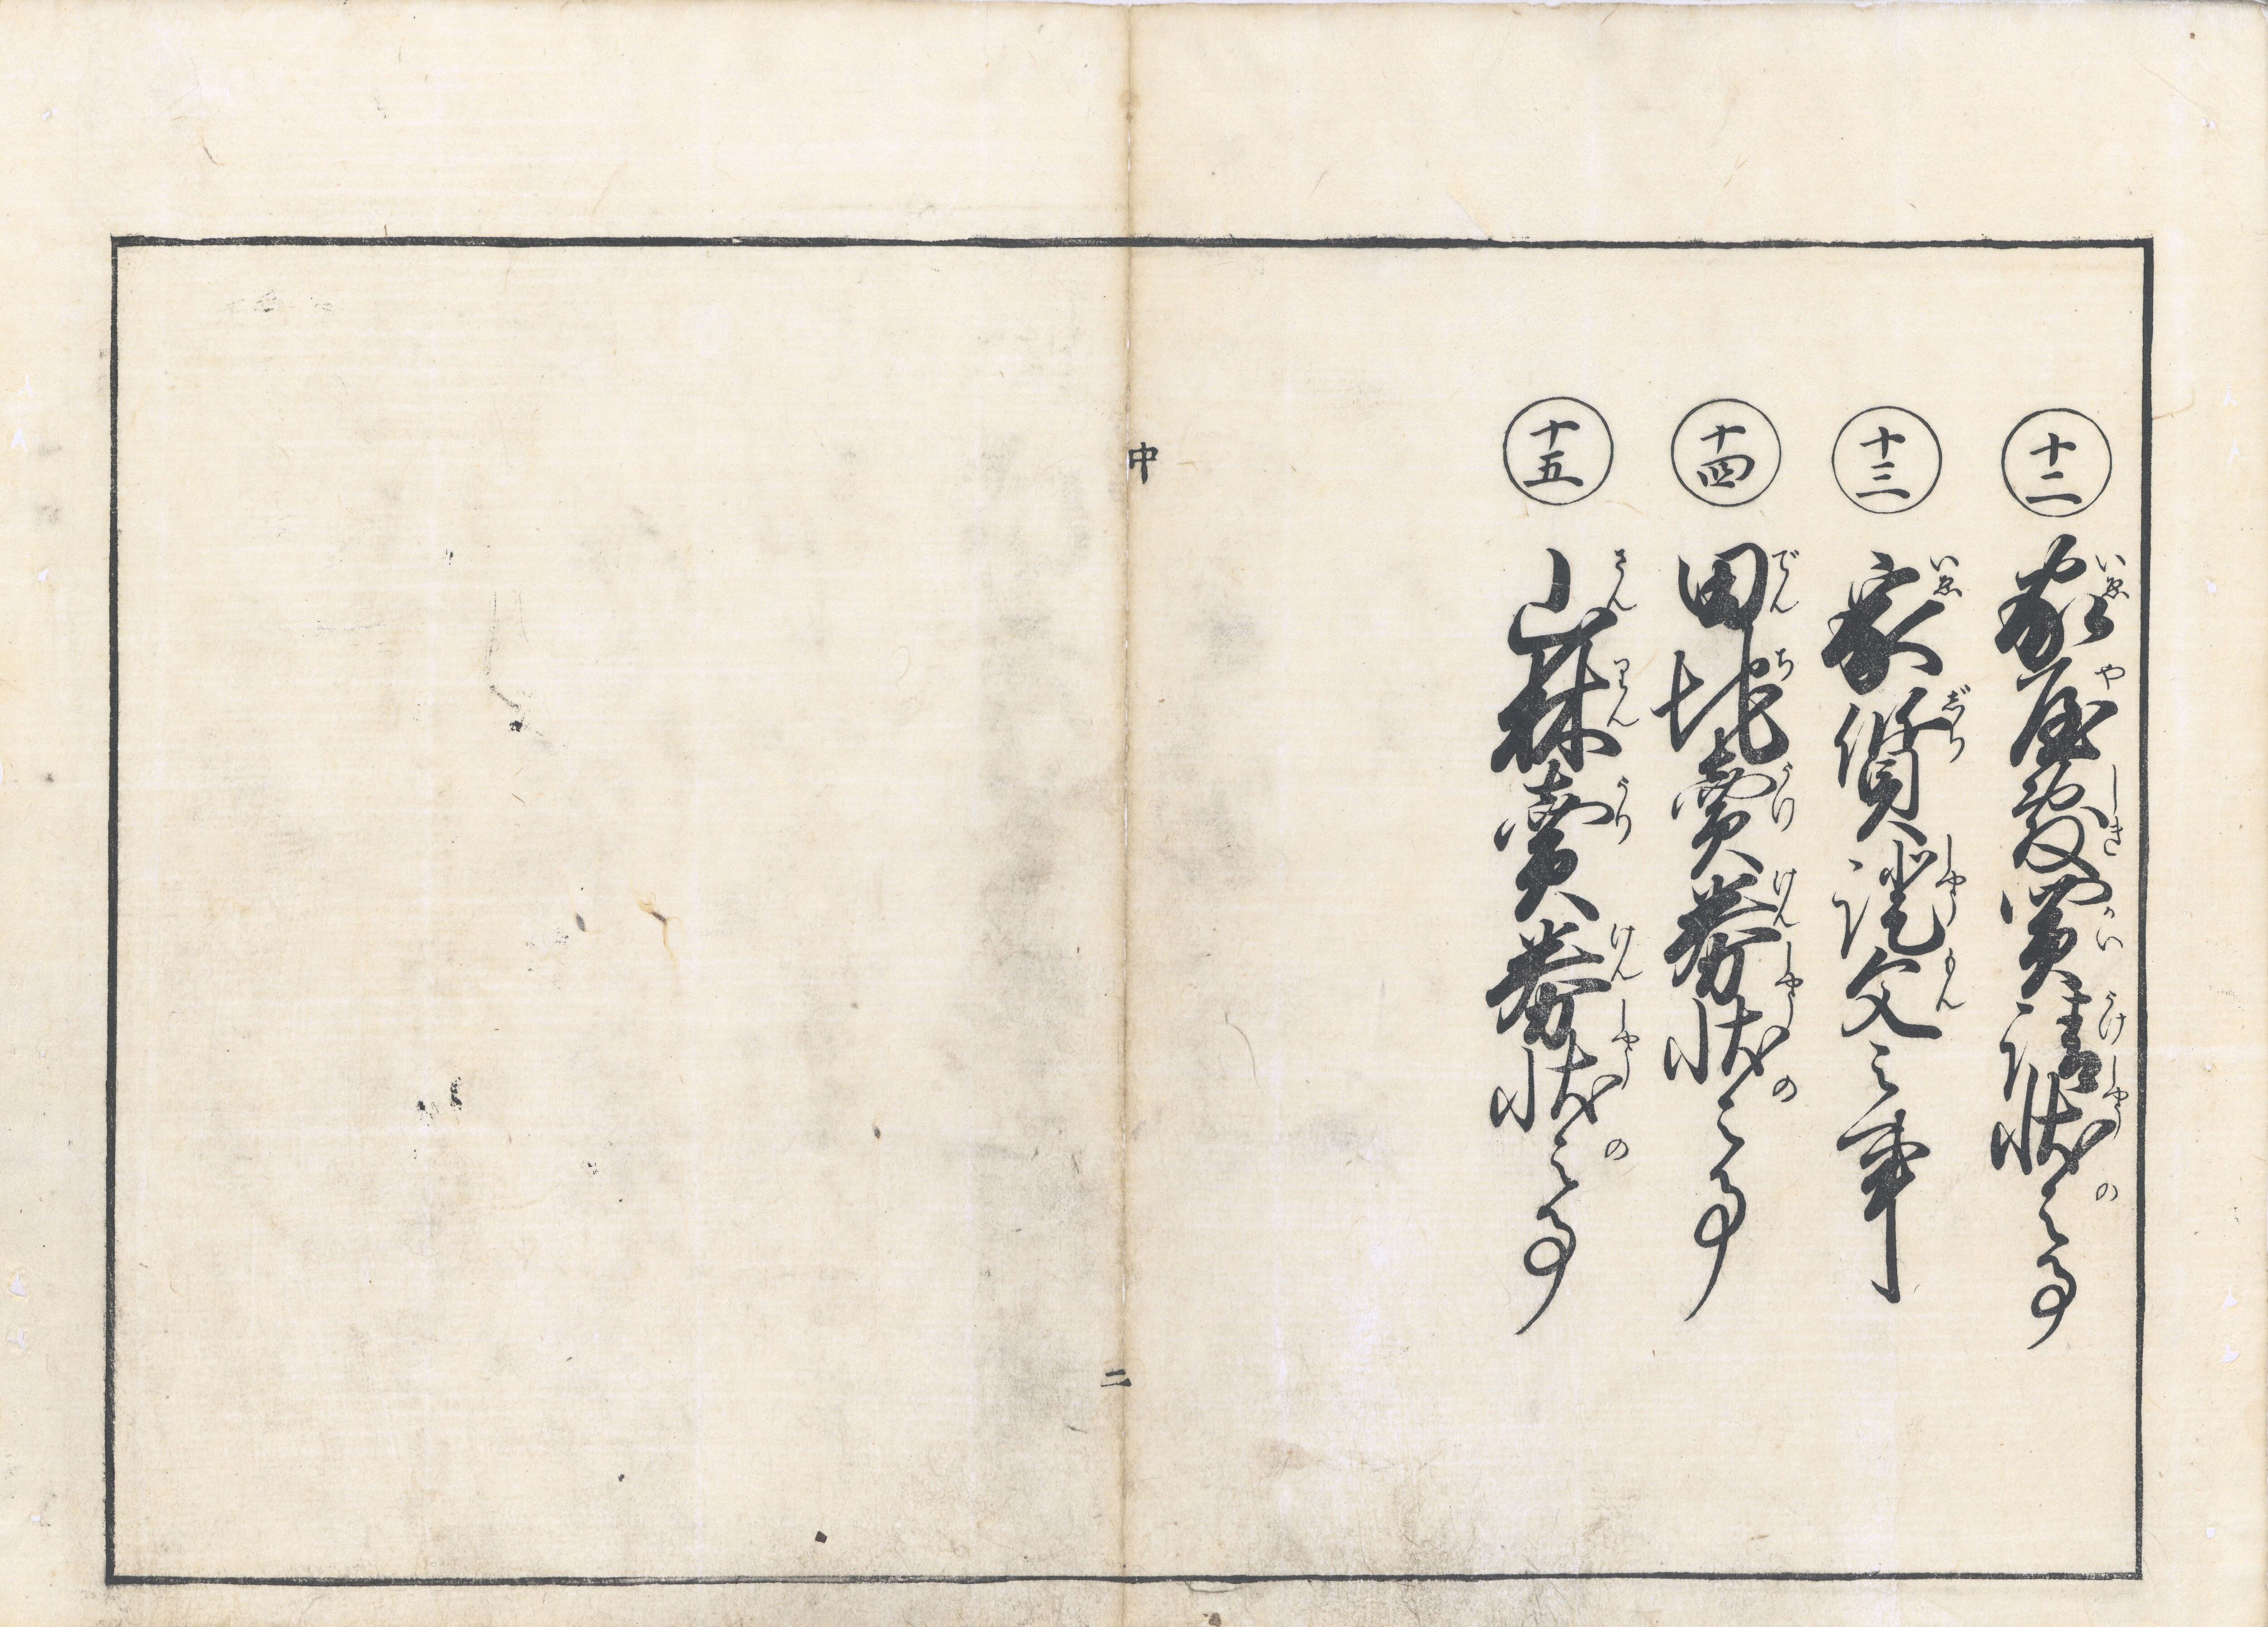 十二 家屋敷買請状之事
十三 家質證文之事
十四 田地賣券状之事
十五 山林賣券状之事
中
二